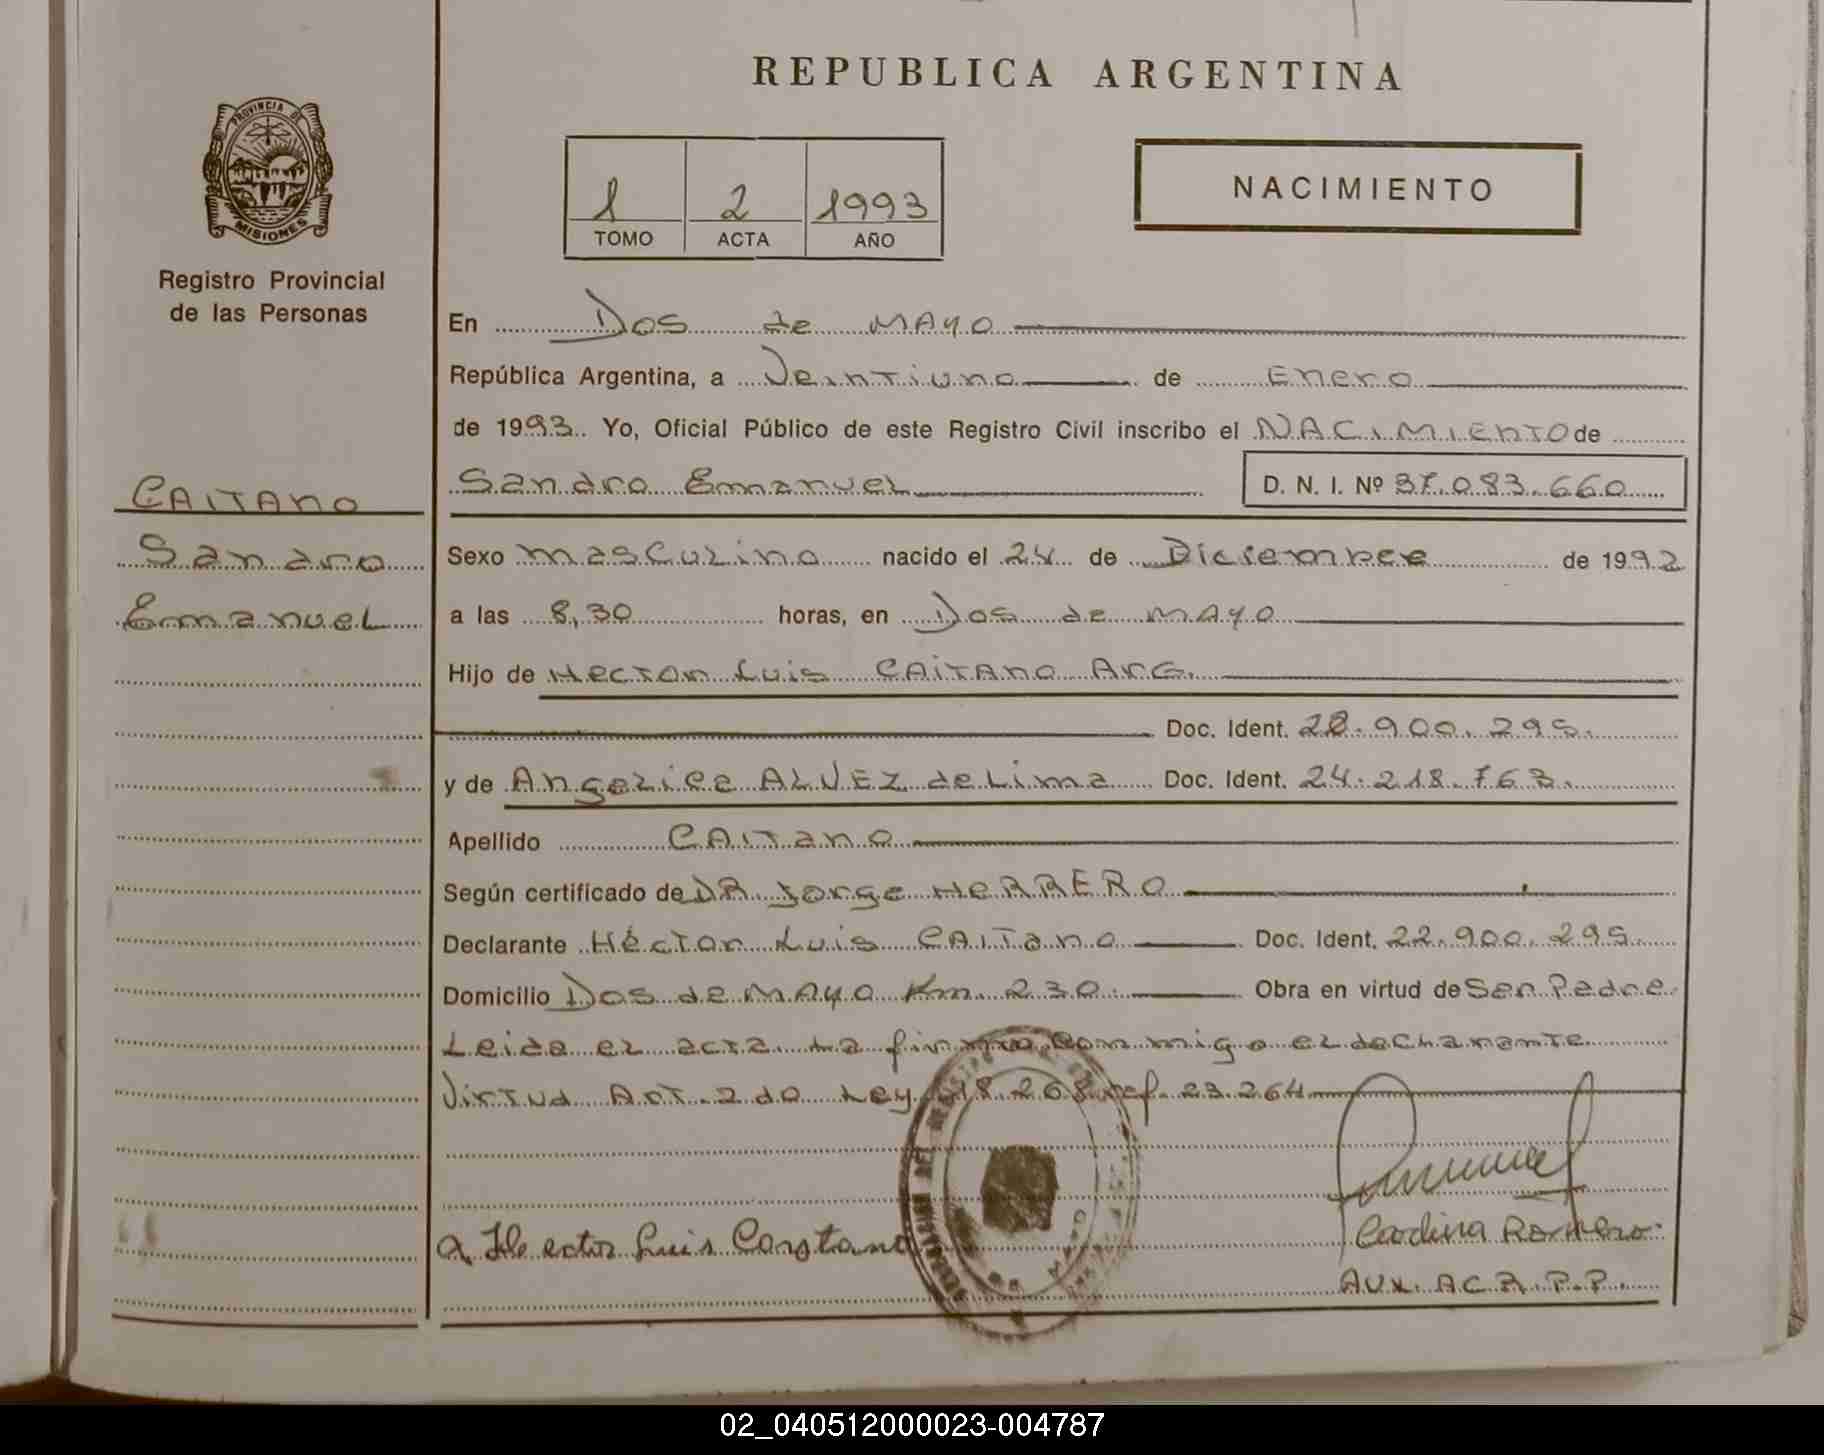 REPUBLICA ARGENTINA
PROVINCIA DE
MISIONES
Registro Provincial
de las Personas
1 2 1993
TOMO ACTA AÑO
NACIMIENTO
En Dos de MAyo
República Argentina, a Veintiuno de Enero
de 1993. Yo, Oficial Público de este Registro Civil inscribo el NACIMIENTO de
CAITANO
Sandro
Emanuel
Sandro Emanuel D. N. I. Nº 37.083.660
Sexo masculino nacido el 24 de Diciembre de 1992
a las 8,30 horas, en Dos de MAyo
Hijo de Hector Luis CAITANO Arg.
Doc. Ident. 22.900.295.
y de Angelica ALVEZ de Lima Doc. Ident. 24.218.763.
Apellido CAITANO
Según certificado de DR. Jorge HERRERO
Declarante Héctor Luis CAITANO Doc. Ident. 22.900.295
Domicilio Dos de MAyo Km. 230. Obra en virtud de Ser Padre
Leida el acta la firma conmigo el declarante
Virtud Art. 2do Ley 18.268 ref. 23.264
a Hector Luis Caytano
Carolina Romero
Aux. AC.R.P.P.
02_040512000023-004787